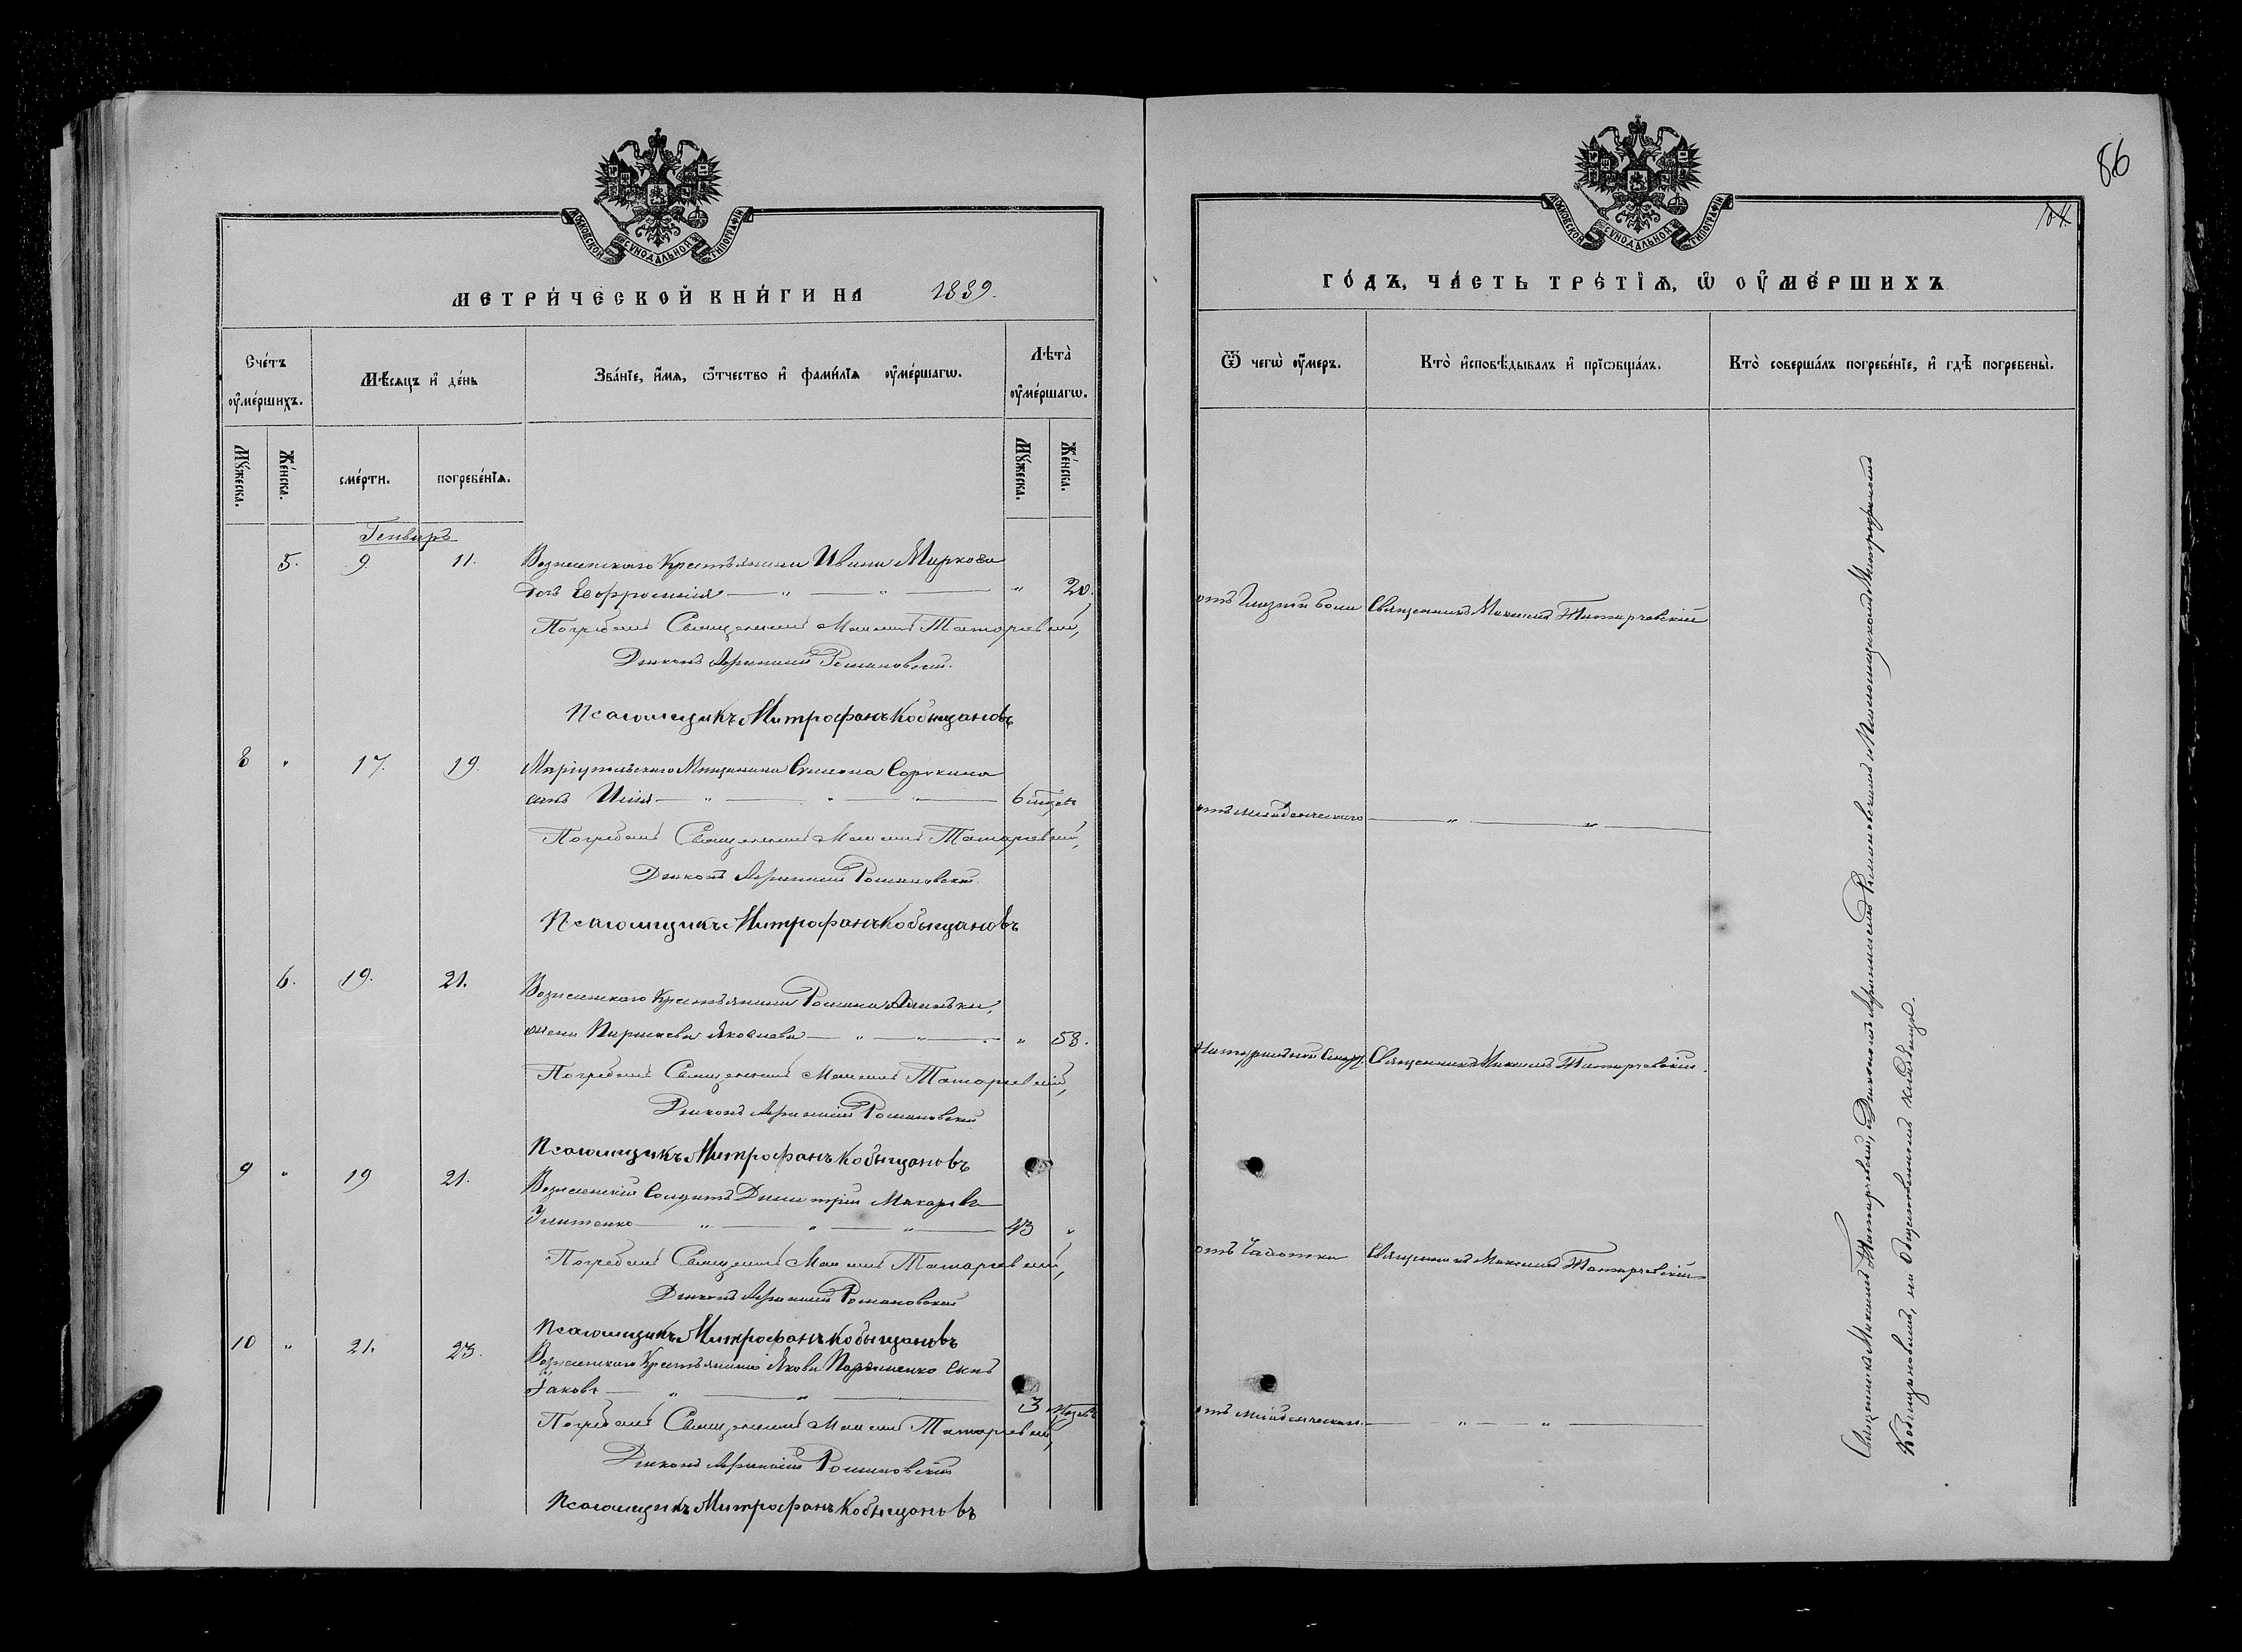 МОСКОВСКОЙ СУНОДАЛЬНОЙ ТИПОГРАФІИ
МЕТРИ́ЧЕСКОЙ КНИ́ГИ НА 1889.
Сче́тъ оу҆ме́ршихъ.
Мѣ́сяцъ и҆ де́нь
Зва́нїе, и҆́мя, ѻ҆́тчество и҆ фами́лїя оу҆ме́ршагѡ.
Лѣта̀ оу҆ме́ршагѡ.
Мꙋ́жеска.
Же́нска.
сме́рти.
погребе́нїѧ.
Мꙋ́жеска.
Же́нска.
Генварь
5. 9. 11. Вознесенскаго Крестьянина Ивана Маркова
дочь Евфросинія " " " 20.
Погребали Священникъ Максимъ Татаревскій,
Діаконъ Романовскій.
Псаломщикъ Митрофанъ Кобыщановъ
8 " 17. 19. Маріупольскаго Мѣщанина Симеона Сорокина
сынъ Илія " " " 6 мѣсяц.
Погребали Священникъ Максимъ Татаревскій,
Діаконъ Романовскій
Псаломщикъ Митрофанъ Кобыщановъ
6. 19. 21. Вознесенскаго Крестьянина Романа
жена Яковлева " " " 58.
Погребали Священникъ Максимъ Татаревскій,
Діаконъ Романовскій
Псаломщикъ Митрофанъ Кобыщановъ
9 " 19 21. Вознесенскій Солдатъ Димитрій Макаровъ
Игнатенко " " " 43 "
Погребали Священникъ Максимъ Татаревскій,
Діаконъ Романовскій
Псаломщикъ Митрофанъ Кобыщановъ
10 " 21. 23. Вознесенскаго Крестьянина Якова сынъ
Іаковъ " " 3 мѣсяц.
Погребали Священникъ Максимъ Татаревскій,
Діаконъ Романовскій
Псаломщикъ Митрофанъ Кобыщановъ
86
МОСКОВСКОЙ СУНОДАЛЬНОЙ ТИПОГРАФІИ
ГО́ДЪ, ЧА́СТЬ ТРЕ́ТЇѦ, Ѡ҆ ОУ҆МЕ́РШИХЪ
Ѿ чегѡ̀ оу҆́меръ.
Кто̀ и҆сповѣ́дывалъ и҆ прїѡбща́лъ.
Кто̀ соверша́лъ погребе́нїе, и҆ гдѣ̀ погребены̀.
отъ боли Священникъ Максимъ Татаревскій
отъ младенческаго " "
Натуральной Священникъ Максимъ Татаревскій.
отъ Чахотки Священникъ Максимъ Татаревскій
отъ младенческаго. " "
Священникъ Максимъ Татаревскій, Діакономъ Романовскимъ и Псаломщикомъ Митрофаномъ
Кобыщановымъ, на Общественномъ кладбищѣ.